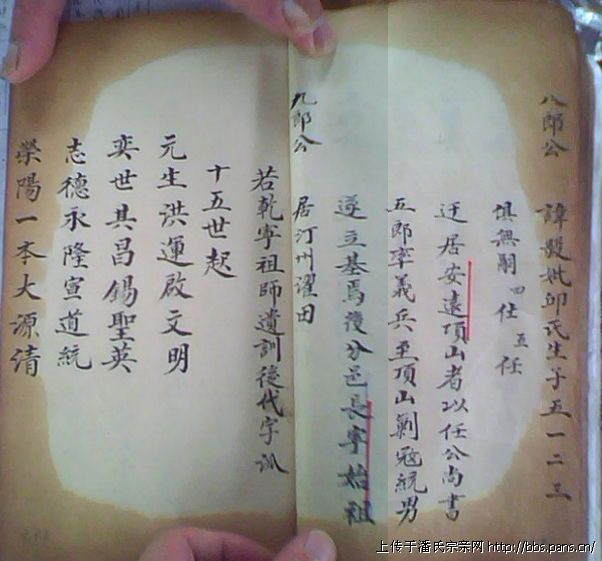 八郎公 諱毀妣邱氏生子五一二三
俱無嗣四仕五任
迁居安遠項山者以任公尚書
五郎率義兵至項山剿寇統男
遂立基焉後分邑長寧始祖
九郎公 居汀州濯田
若乾寧祖師遺訓後代字派
十五世起
元生洪運啟文明
奕世其昌錫聖英
志德永隆宣道統
榮陽一本大源清
上传于潘氏宗亲网 http://bbs.pans.cn/